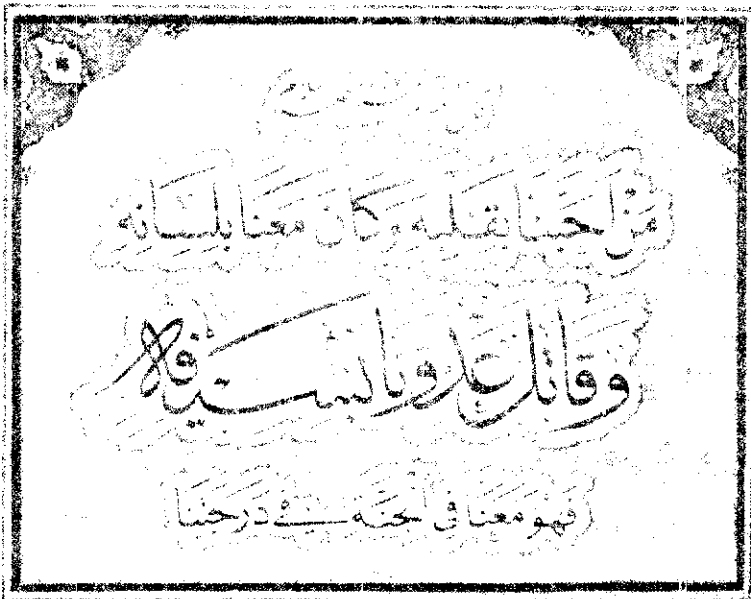 من احبنا بقلبه وكان معنا بلسانه
وقاتل عدونا بسيفه
فهو معنا في الجنة في درجتنا